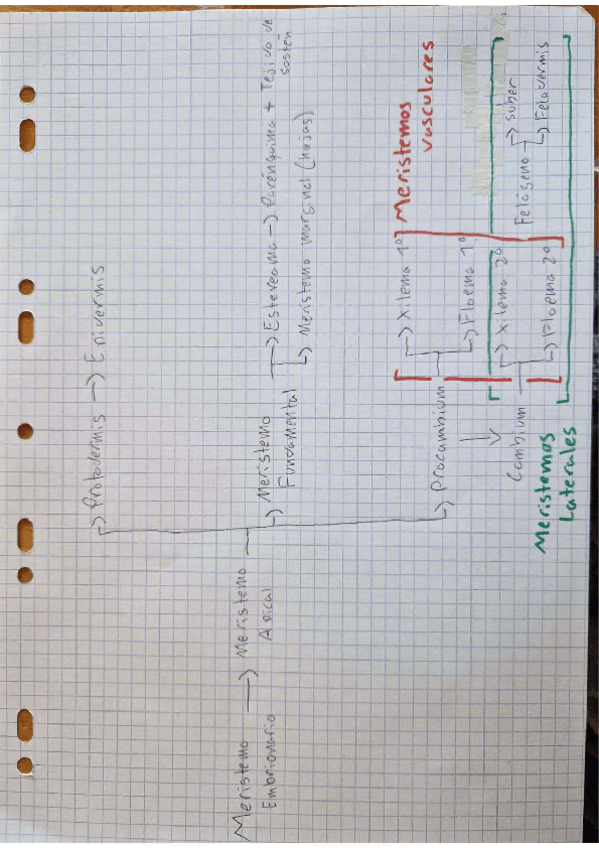 Meristemo
Embrionario
Meristemo
Apical
Protodermis
Epidermis
Meristemo
Fundamental
Estereoma → Parénquima + Tejido de
sostén
Meristemo marginal (hojas)
Procambium
Xilema 1º
Floema 1º
Meristemos
vasculares
Cambium
Xilema 2º
Floema 2º
Felógeno
Súber
Felodermis
Meristemos
Laterales